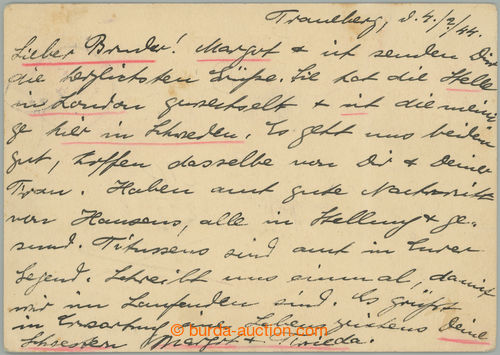 Traneberg, d. 4./2/44.
Lieber Bruder! Margot & ich senden Dir
die herzlichsten Grüße. Sie hat die Stelle
in London gewechselt & ich die meini-
ge hier in Schweden. Es geht uns beiden
gut, hoffen dasselbe von Dir & Deiner
Frau. Haben auch gute Nachricht
von Hausens, alle in Stellung & ge-
sund. Titussens sind auch in Eurer
Gegend. Schreibt uns einmal, damit
wir im Laufenden sind. Es grüßt
in Erwartung Deine
Schwestern Margot & Frieda.
© burda-auction.com